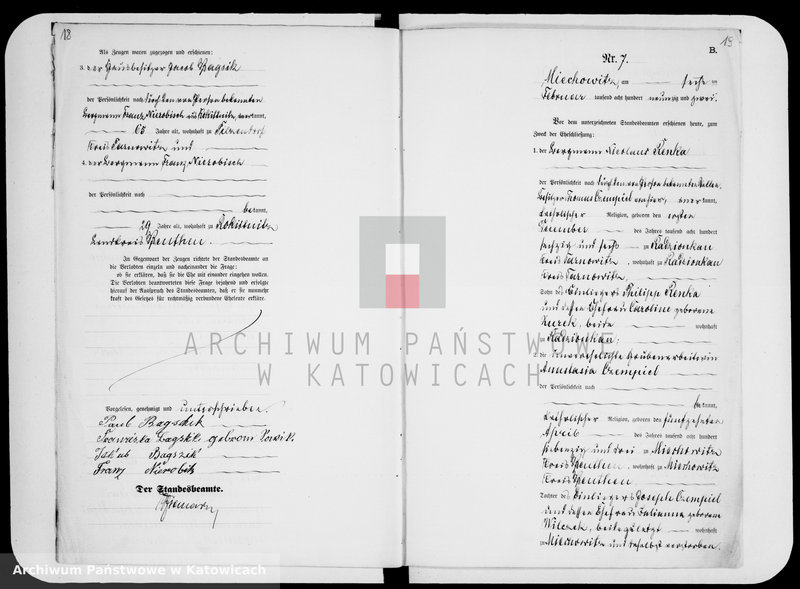 18
Als Zeugen waren zugezogen und erschienen:
3. der Hausbesitzer Jacob Bagsik
der Persönlichkeit nach durch den von Person bekannten
Bergmann Franz Nierobisch aus Rokittnitz, kannt,
65 Jahre alt, wohnhaft zu
Kreis Tarnowitz und
4. der Bergmann Franz Nierobisch
der Persönlichkeit nach
bekannt,
29 Jahre alt, wohnhaft zu Rokittnitz
Landkreis Beuthen.
In Gegenwart der Zeugen richtete der Standesbeamte an
die Verlobten einzeln und nacheinander die Frage:
ob sie erklären, daß sie die Ehe mit einander eingehen wollen.
Die Verlobten beantworteten diese Frage bejahend und erfolgte
hierauf der Ausspruch des Standesbeamten, daß er sie nunmehr
kraft des Gesetzes für rechtmäßig verbundene Eheleute erkläre.
Vorgelesen, genehmigt und unterschrieben.
Paul Bagsik
geborene
Jakub Bagszik
Franz
Der Standesbeamte.
19
B.
Nr. 7.
Miechowitz, am sechs ten
Februar tausend acht hundert neunzig und zwei.
Vor dem unterzeichneten Standesbeamten erschienen heute, zum
Zweck der Eheschließung:
1. der Bergmann Nicolaus Renka
der Persönlichkeit nach durch den von Person bekannten
besitzer Thomas Czempiel von hier, aner kannt,
katholischer Religion, geboren den ersten
des Jahres tausend acht hundert
sechzig und sechs zu Radzionkau
Kreis Tarnowitz, wohnhaft zu Radzionkau
Kreis Tarnowitz,
Sohn des Einliegers Philipp Renka
und dessen Ehefrau Caroline geborene
beide wohnhaft
zu Radzionkau;
2. die unverehelichte Grubenarbeiterin
Anastasia Czempiel
der Persönlichkeit nach
bekannt,
katholischer Religion, geboren den fünfzehnten
April des Jahres tausend acht hundert
siebenzig und drei zu Miechowitz
Kreis Beuthen, wohnhaft zu Miechowitz
Kreis Beuthen
Tochter des Einliegers Joseph Czempiel
und dessen Ehefrau Julianna geborene
Wilczek, beide zuletzt wohnhaft
zu Miechowitz und daselbst verstorben.
ARCHIWUM PAŃSTWOWE
W KATOWICACH
Archiwum Państwowe w Katowicach